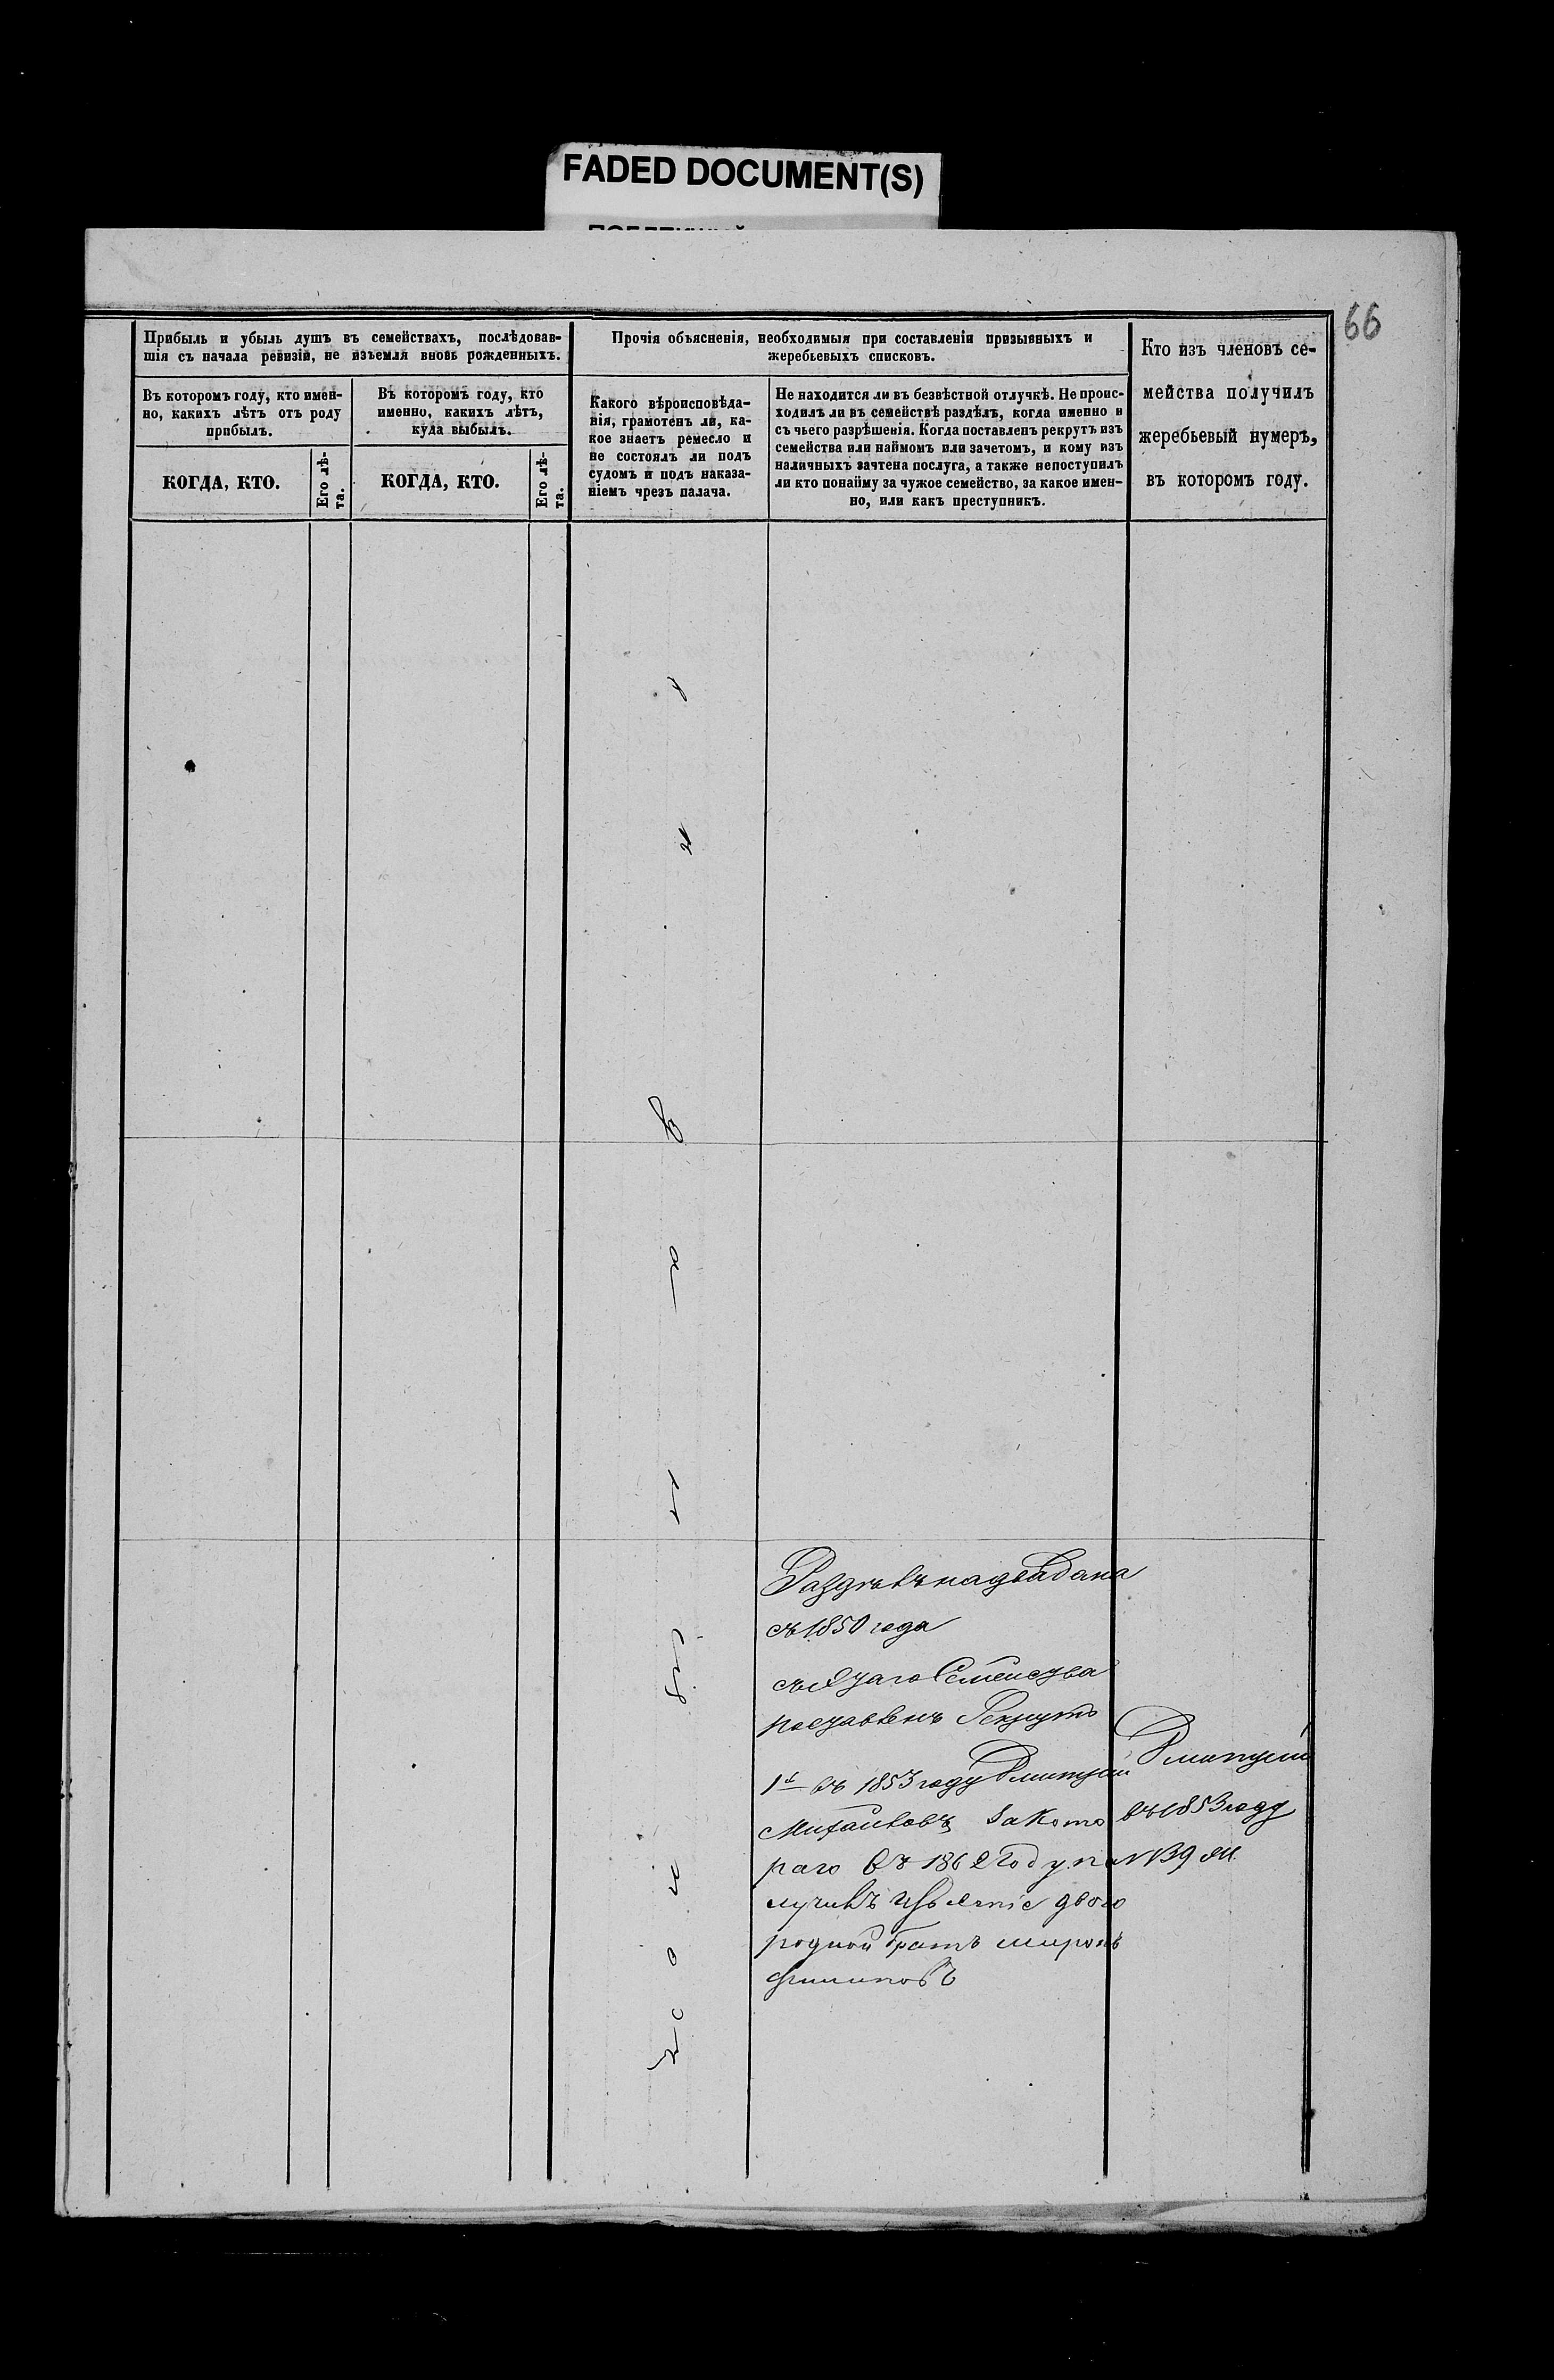 FADED DOCUMENT(S)
66
Прибыль и убыль душъ въ семействахъ, послѣдовав-
шія съ начала ревизіи, не изъемля вновь рожденныхъ.
Въ которомъ году, кто имен-
но, какихъ лѣтъ отъ роду
прибылъ.
КОГДА, КТО.
Его лѣ-
та.
Въ которомъ году, кто
именно, какихъ лѣтъ,
куда выбылъ.
КОГДА, КТО.
Его лѣ-
та.
Прочія объясненія, необходимыя при составленіи призывныхъ и
жеребьевыхъ списковъ.
Какого вѣроисповѣда-
нія, грамотенъ ли, ка-
кое знаетъ ремесло и
не состоялъ ли подъ
судомъ и подъ наказа-
ніемъ чрезъ палача.
Не находится ли въ безвѣстной отлучкѣ. Не проис-
ходилъ ли въ семействѣ раздѣлъ, когда именно и
съ чьего разрѣшенія. Когда поставленъ рекрутъ изъ
семейства или наймомъ или зачетомъ, и кому изъ
наличныхъ зачтена послуга, а также непоступилъ
ли кто понайму за чужое семейство, за какое имен-
но, или какъ преступникъ.
Кто изъ членовъ се-
мейства получилъ
жеребьевый нумеръ,
въ которомъ году.
съ 1850 года
Семейства
поставленъ Рекрутъ
въ 1853 году Дмитрій
Михайловъ За Кото
раго Въ 1862 Году по
лучилъ двою
родной братъ Миронъ
Филиповъ
Дмитрій
въ 1853 году
N 139 й